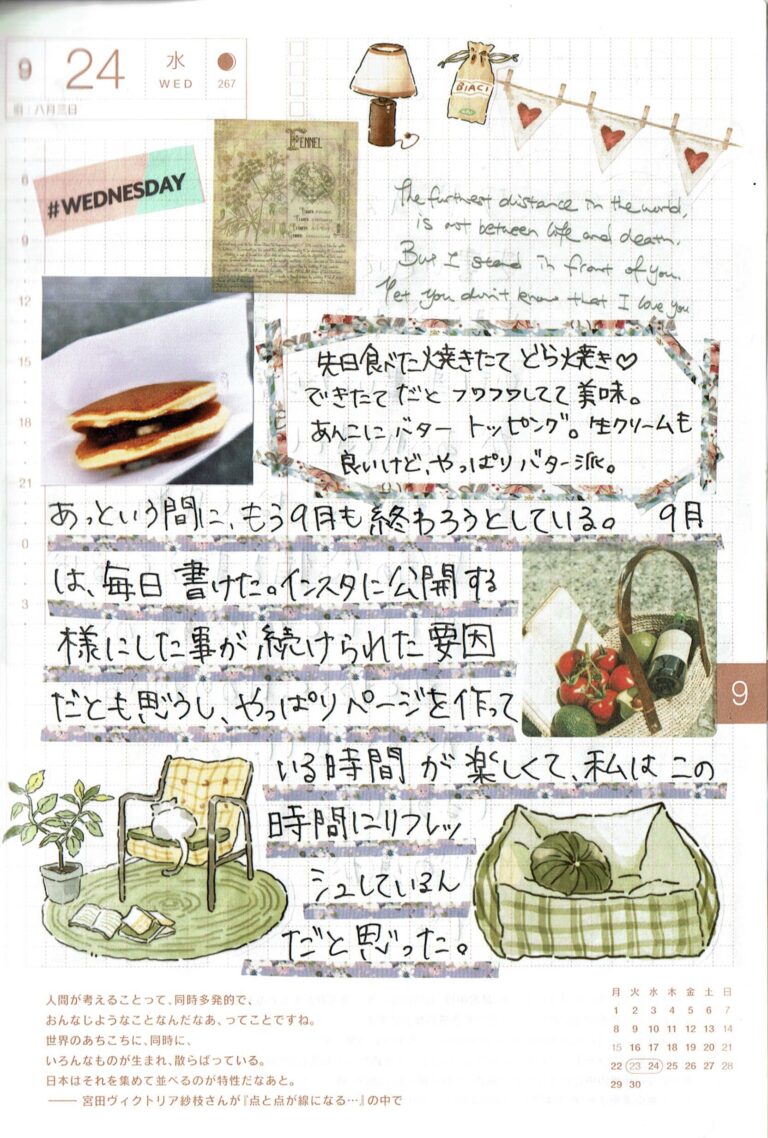 9
24
水
WED
267
旧 八月三日
BIACI
FENNEL
#WEDNESDAY
6
9
12
15
18
21
0
3
The furthest distance in the world,
is not between life and death.
But I stand in front of you.
Yet you don't know that I love you
先日食べた火焼きたて どら焼き♡
できたてだと フワフワしてて 美味。
あんこにバター トッピング。生クリームも
良いけど、やっぱり バター派。
あっという間に、もう9月も終わろうとしている。 9月
は、毎日 書けた。インスタに公開する
様にした事が 続けられた 要因
だとも思うし、やっぱりページを作って
いる時間 が 楽しくて、私は この
時間にリフレッ
シュしているん
だと 思った。
9
人間が考えることって、同時多発的で、
おんなじようなことなんだなあ、ってことですね。
世界のあちこちに、同時に、
いろんなものが生まれ、散らばっている。
日本はそれを集めて並べるのが特性だなあと。
―― 宮田ヴィクトリア紗枝さんが『点と点が線になる…』の中で
月 火 水 木 金 土 日
1 2 3 4 5 6 7
8 9 10 11 12 13 14
15 16 17 18 19 20 21
22 23 24 25 26 27 28
29 30